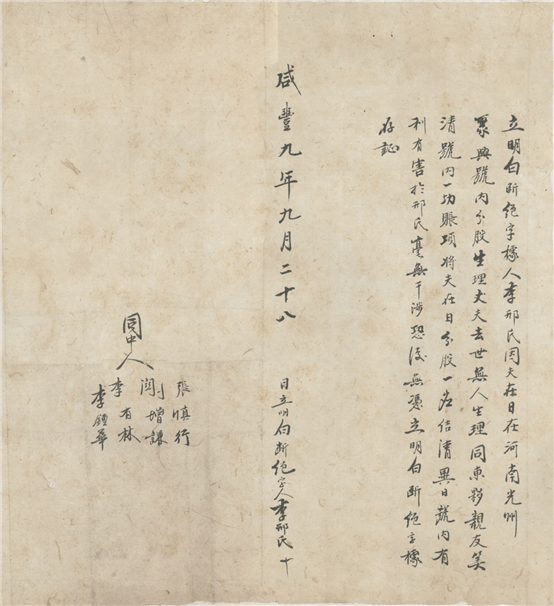 立明白斷絕字據人李邢氏因夫在日在河南光州
興號內分股生理丈夫去世無人生理同東夥親友算
清號內一切賬項將夫在日分股一名結清異日號內有
利有害於邢氏毫無干涉恐後無憑立明白斷絕字據
存証
咸豐九年九月二十八 日立明白斷絕字人李邢氏 十
同中人
張慎行
劉增謙
閻
李百林
李鍾華